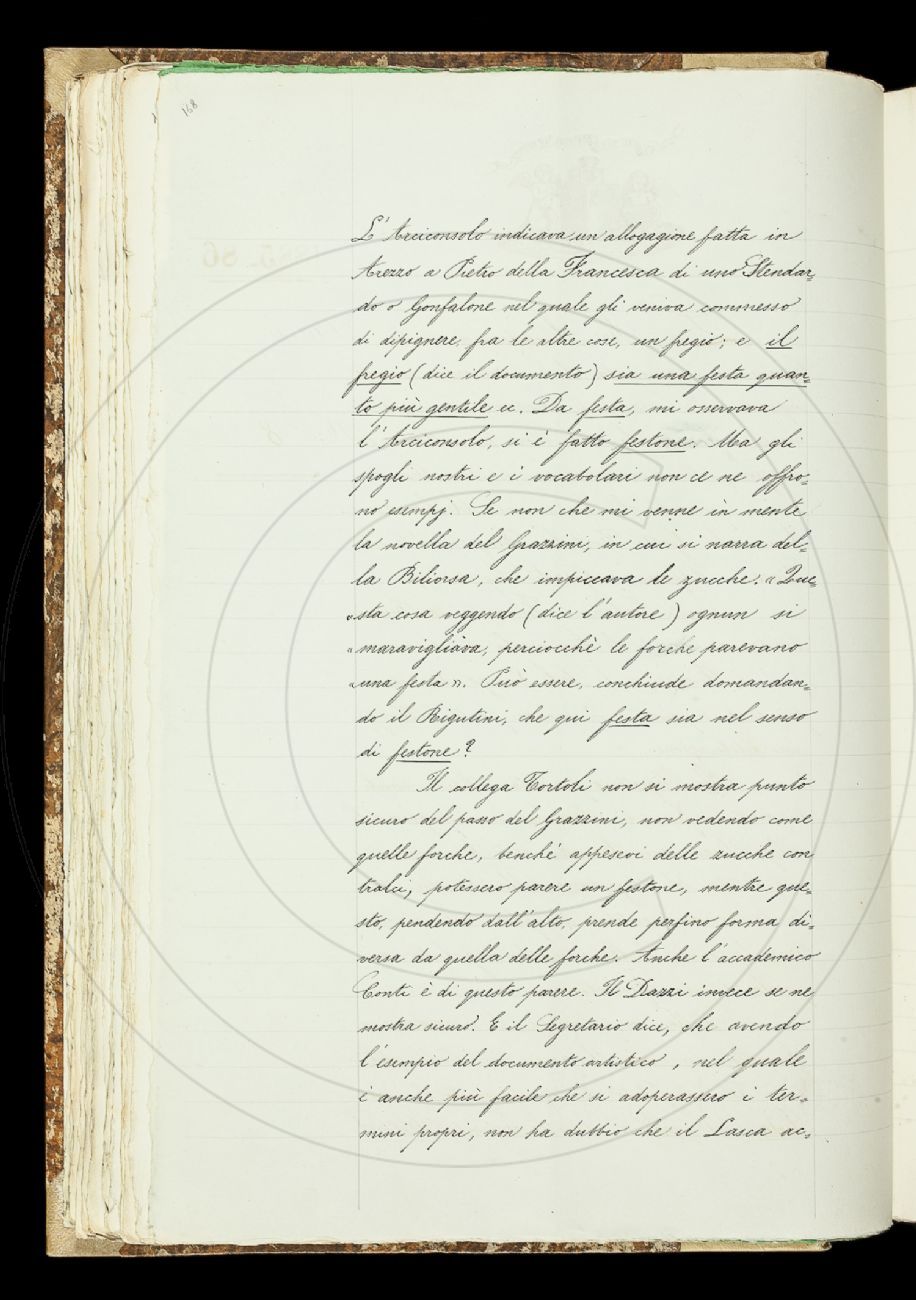 168
L'Arciconsolo indicava un'allogagione fatta in
Arezzo a Pietro della Francesca di uno Stendar=
do o Gonfalone nel quale gli veniva commesso
di dipignere, fra le altre cose, un fregio; e il
fregio (dice il documento) sia una festa quan=
to più gentile ec. Da festa, mi osservava
l'Arciconsolo, si è fatto festone. Ma gli
spogli nostri e i vocabolari non ce ne offro=
no esempj. Se non che mi venne in mente
la novella del Grazzini, in cui si narra del=
la Biliorsa, che impiccava le zucche: « Que=
« sta cosa veggendo (dice l'autore) ognun si
« maravigliava, perciocchè le forche parevano
« una festa ». Può essere, conchiude domandan=
do il Rigutini, che qui festa sia nel senso
di festone?
Il collega Tortoli non si mostra punto
sicuro del passo del Grazzini, non vedendo come
quelle forche, benchè appesevi delle zucche con
tralci, potessero parere un festone, mentre que=
sto, pendendo dall'alto, prende perfino forma di=
versa da quella delle forche. Anche l'accademico
Conti è di questo parere. Il Dazzi invece se ne
mostra sicuro. E il Segretario dice, che avendo
l'esempio del documento artistico, nel quale
è anche più facile che si adoperassero i ter=
mini propri, non ha dubbio che il Lasca ac=